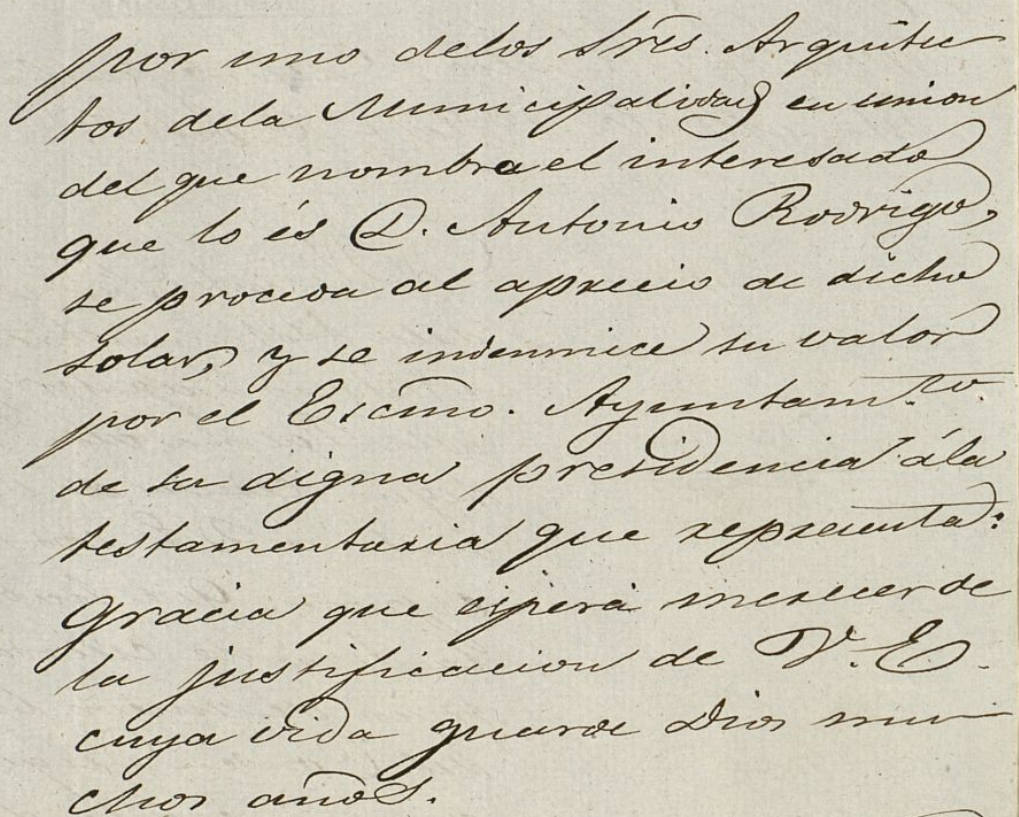 por uno delos Sres. Arquitec
tos dela Municipalidad en union
del que nombra el interesado
que lo és D. Antonio Rodrigo,
se proceda al aprecio de dicho
solar, y se indemnice su valor
por el Escmo. Ayuntam.to
de su digna presidencia ála
testamentaria que representa:
Gracia que espera merecer de
la justificacion de V. E.
cuya vida guarde Dios mu
chos años.